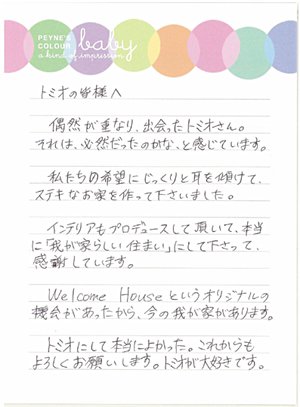 PEYNE'S
COLOUR
baby
a kind of impression
トミオの皆様へ
偶然が重なり、出会ったトミオさん。
それは、必然だったのかな、と感じています。
私たちの希望にじっくりと耳を傾けて、
ステキなお家を作って下さいました。
インテリアもプロデュースして頂いて、本当
に「我が家らしい住まい」にして下さって、
感謝しています。
Welcome Houseというオリジナルの
機会があったから、今の我が家があります。
トミオにして本当によかった。これからも
よろしくお願いします。トミオが大好きです。